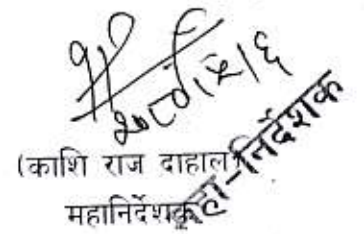 (काशि राज दाहाल)
महानिर्देशक
महा-निर्देशक